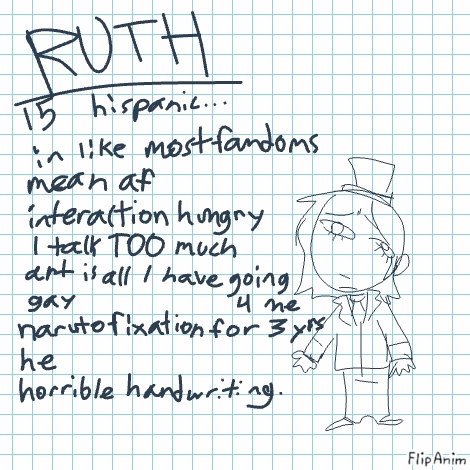 RUTH
15 hispanic...
in like most fandoms
mean af
interaction hungry
I talk TOO much
art is all I have going
gay 4 me
narutofixation for 3 yrs
he
horrible handwriting.
FlipAnim